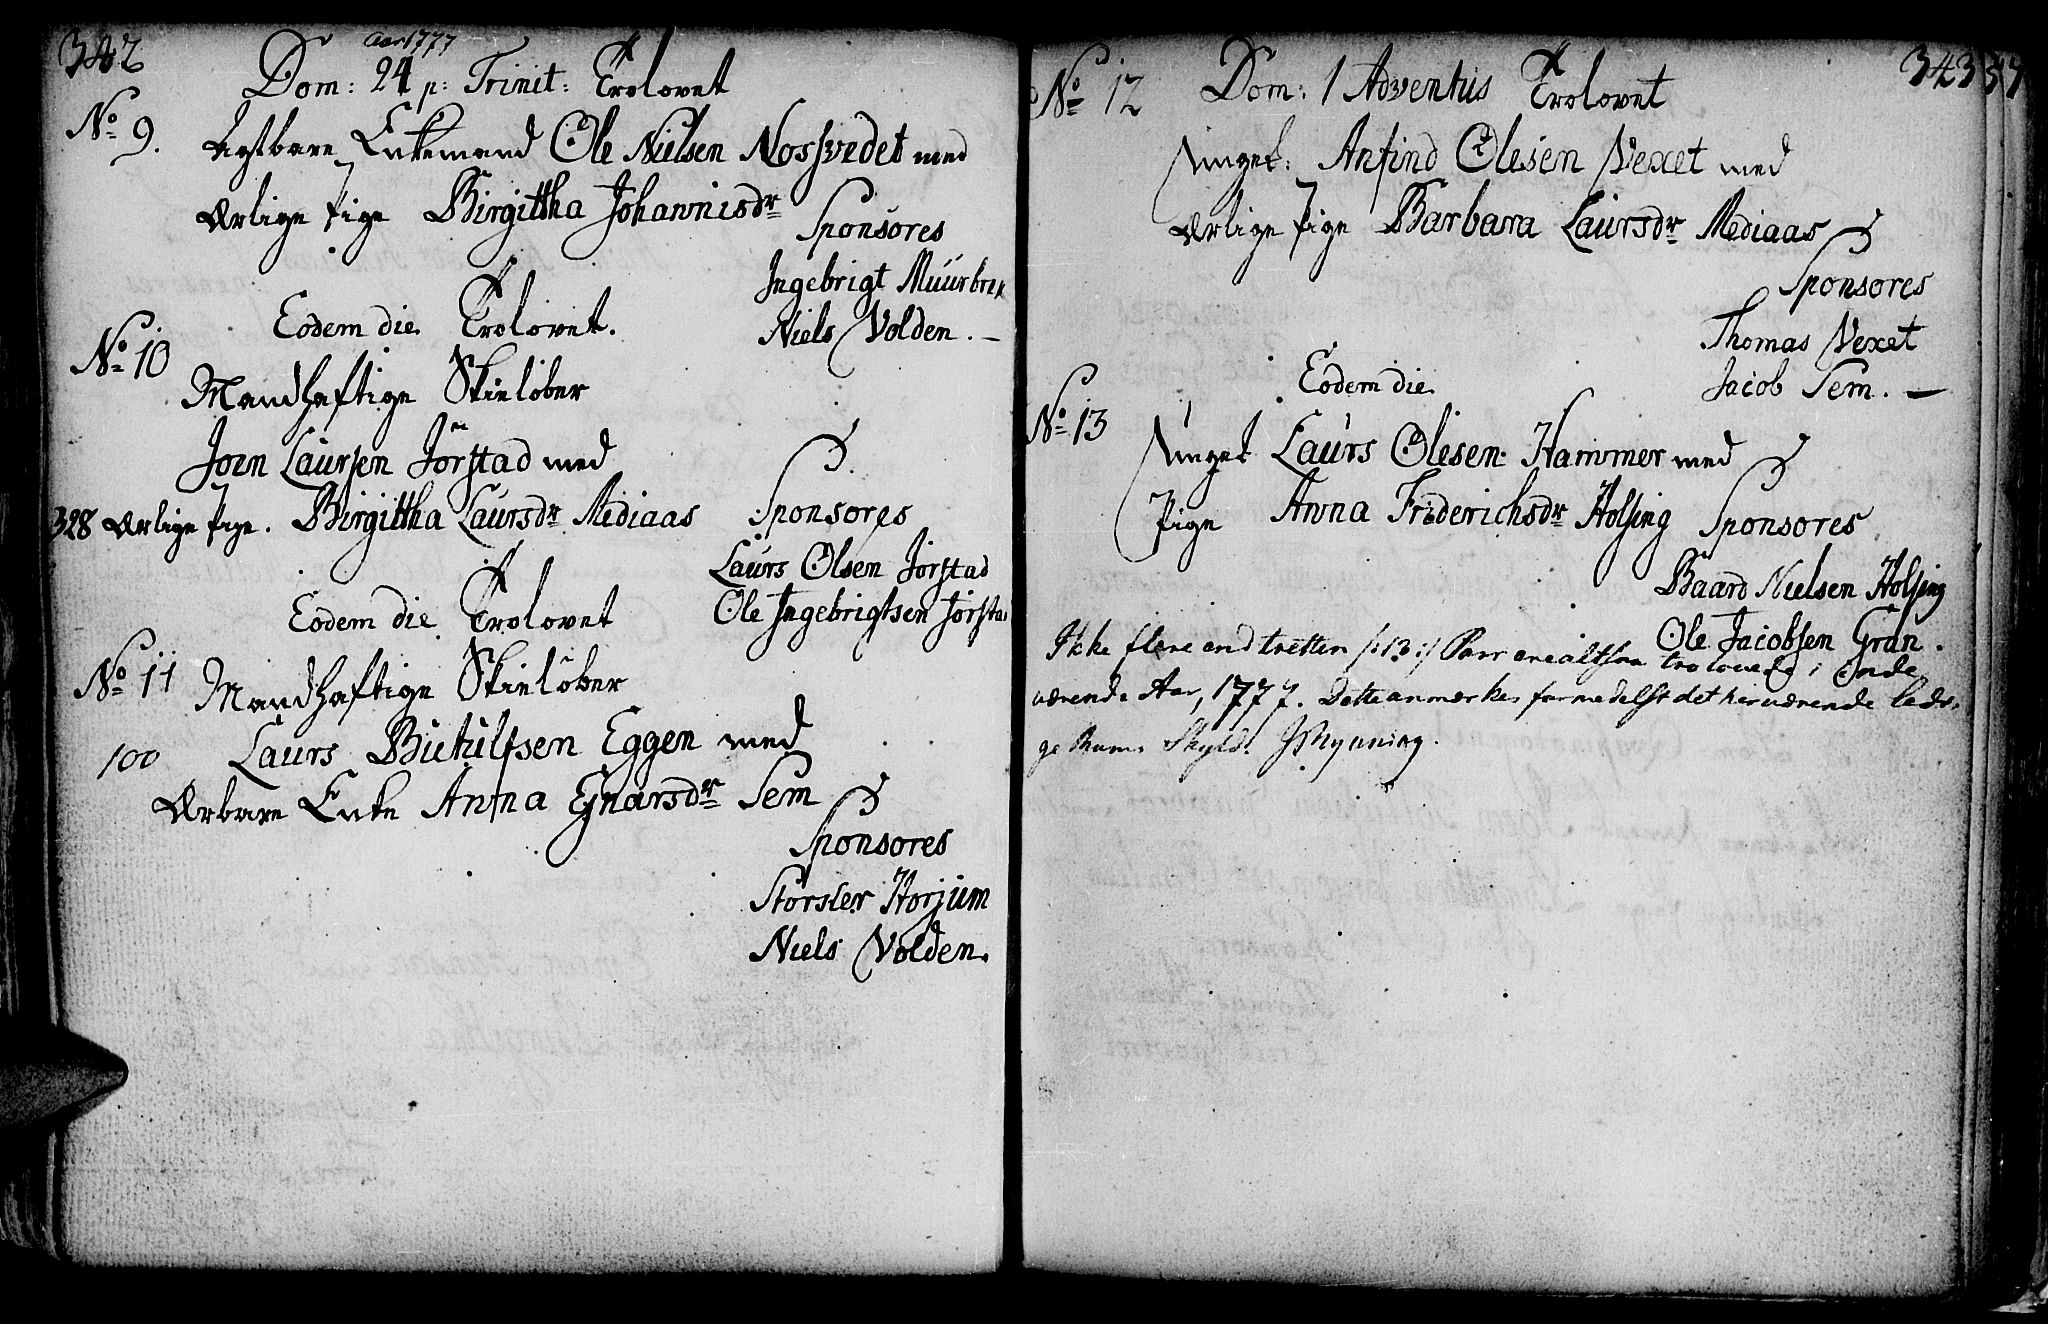 342
Aar 1777
Dom: 24 p: Trinit: Trolovet
No 9. Agtbare Enkemand Ole Nielsen Nossvedet med
Ærlige Pige Birgittha Johannisdr
Sponsores
Ingebrigt Muurbrek
Niels Volden. —
Eodem die Trolovet.
No 10
Mandhaftige Skieløber
Joen Laursen Jørstad med
328 Ærlige Pige. Birgittha Laursdr Mediaas
Sponsores
Laurs Olsen Jørstad
Ole Ingebrigtsen Jørstad
Eodem die Trolovet
No 11 Mandhaftige Skieløber
100 Laurs Biehülfsen Eggen med
Ærbare Enke Anna Ejnarsdr Sem
Sponsores
Størster Horjum
Niels Volden.
343 57
No 12 Dom: 1 Adventus Trolovet
Unget: Anfind Olesen Vexet med
Ærlige Pige Barbara Laursdr Mediaas
Sponsores
Thomas Vexet
Jacob Sem. —
Eodem die
No 13
Unget Laurs Olesen Hammer med
Pige Anna Friderichsdr Holsing Sponsores
Baard Nielsen Holsing
Ole Jacobsen Gran.
Ikke flere end tretten /: 13 :/ Parr ere altsaa trolovede i inde
værende Aar, 1777. Dette anmærkes formedelst det herværende ledi-
ge Rums Skyld.